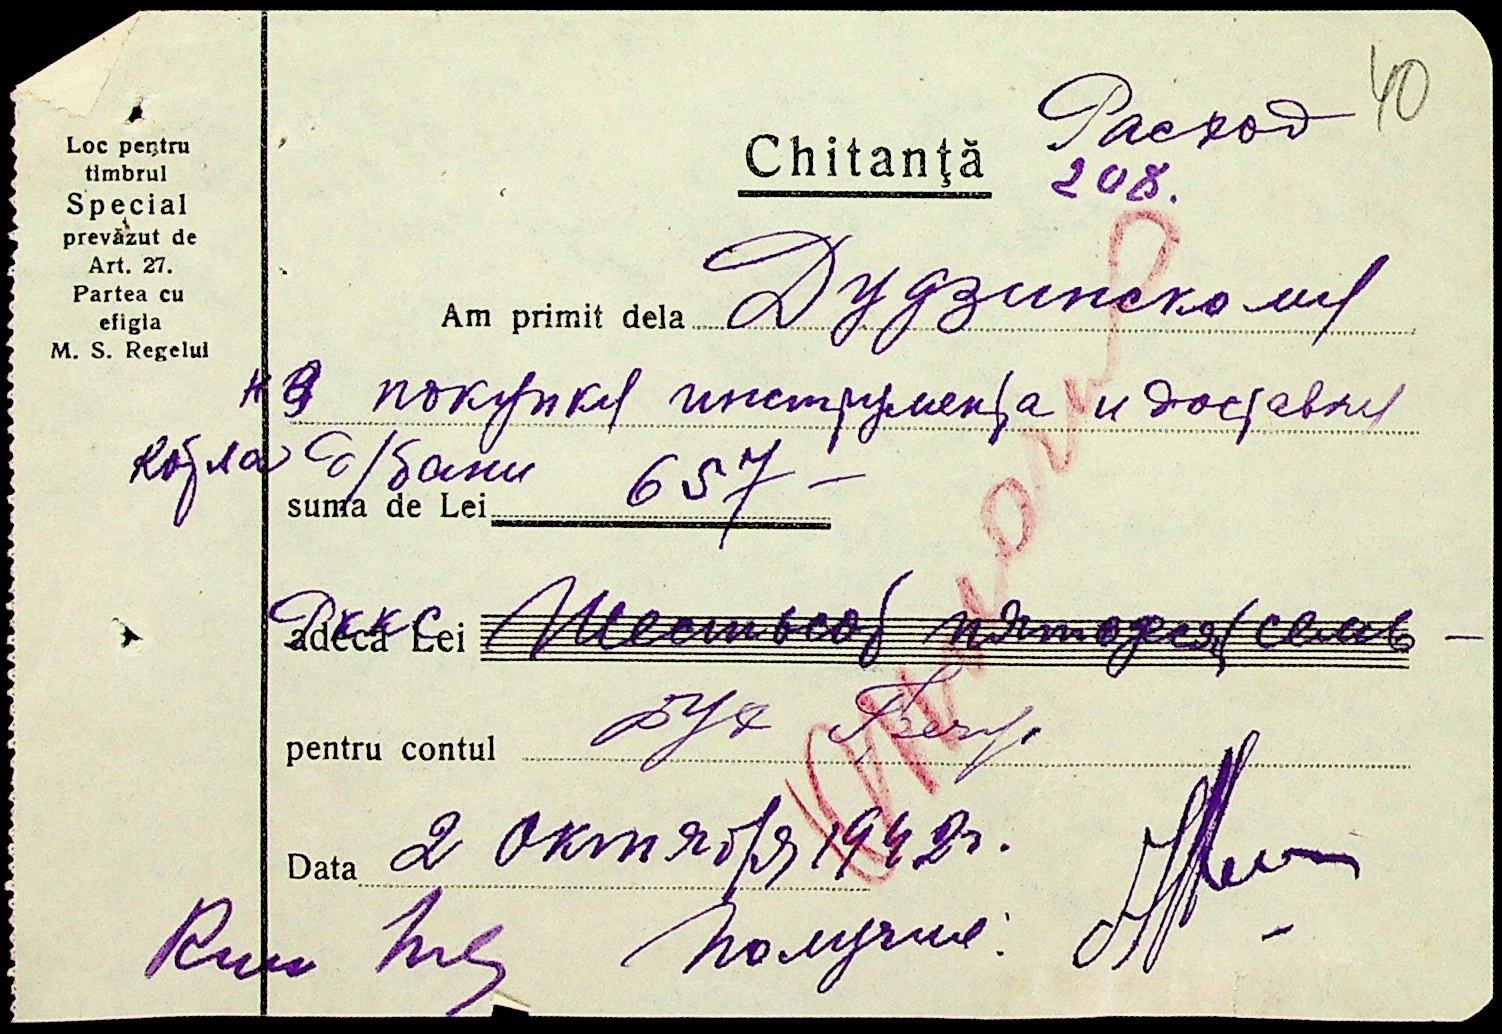 40
Расход
Chitanţă
208.
Loc pentru
timbrul
Special
prevăzut de
Art. 27.
Partea cu
efigia
M. S. Regelui
Am primit dela Дудзинскому
на покупку инструмента и доставку
котла д/бани
suma de Lei 657 –
adecă Lei Шестьсот пятьдесят семь –
pentru contul Бух
Data 2 октября 1942 г.
Получил: